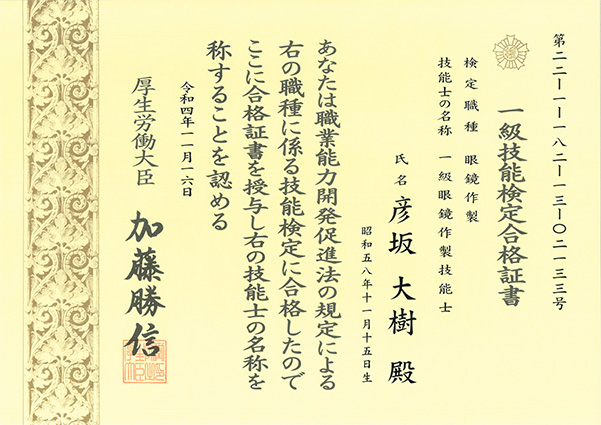 第二二ー一ー一八二ー一三ー〇二一三三号
一級技能検定合格証書
検定職種 眼鏡作製
技能士の名称 一級眼鏡作製技能士
氏名 彦坂 大樹 殿
昭和五八年十一月十五日生
あなたは職業能力開発促進法の規定による
右の職種に係る技能検定に合格したので
ここに合格証書を授与し右の技能士の名称を
称することを認める
令和四年一一月一六日
厚生労働大臣 加藤勝信